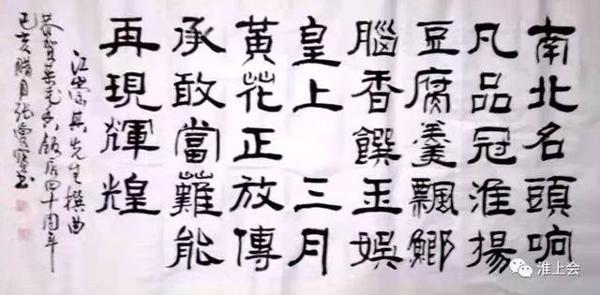 南北名頭响
凡品冠淮揚
豆腐羹飄鯽
腦香饌玉娛
皇上 三月
黃花正放傳
承敢當難能
再現輝煌
江崇其先生撰曲
恭賀飯店四十周年
己亥腊月張書
淮上会